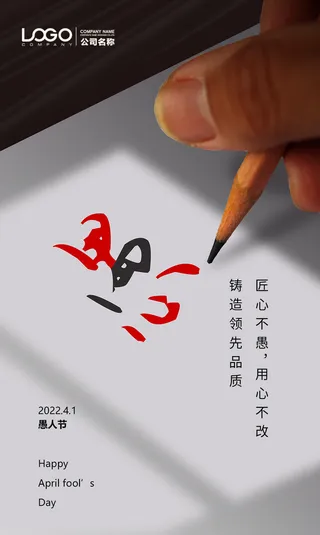 LOGO
COMPANY
COMPANY NAME
公司名称
愚
匠心不愚，用心不改
铸造领先品质
2022.4.1
愚人节
Happy
April fool's
Day